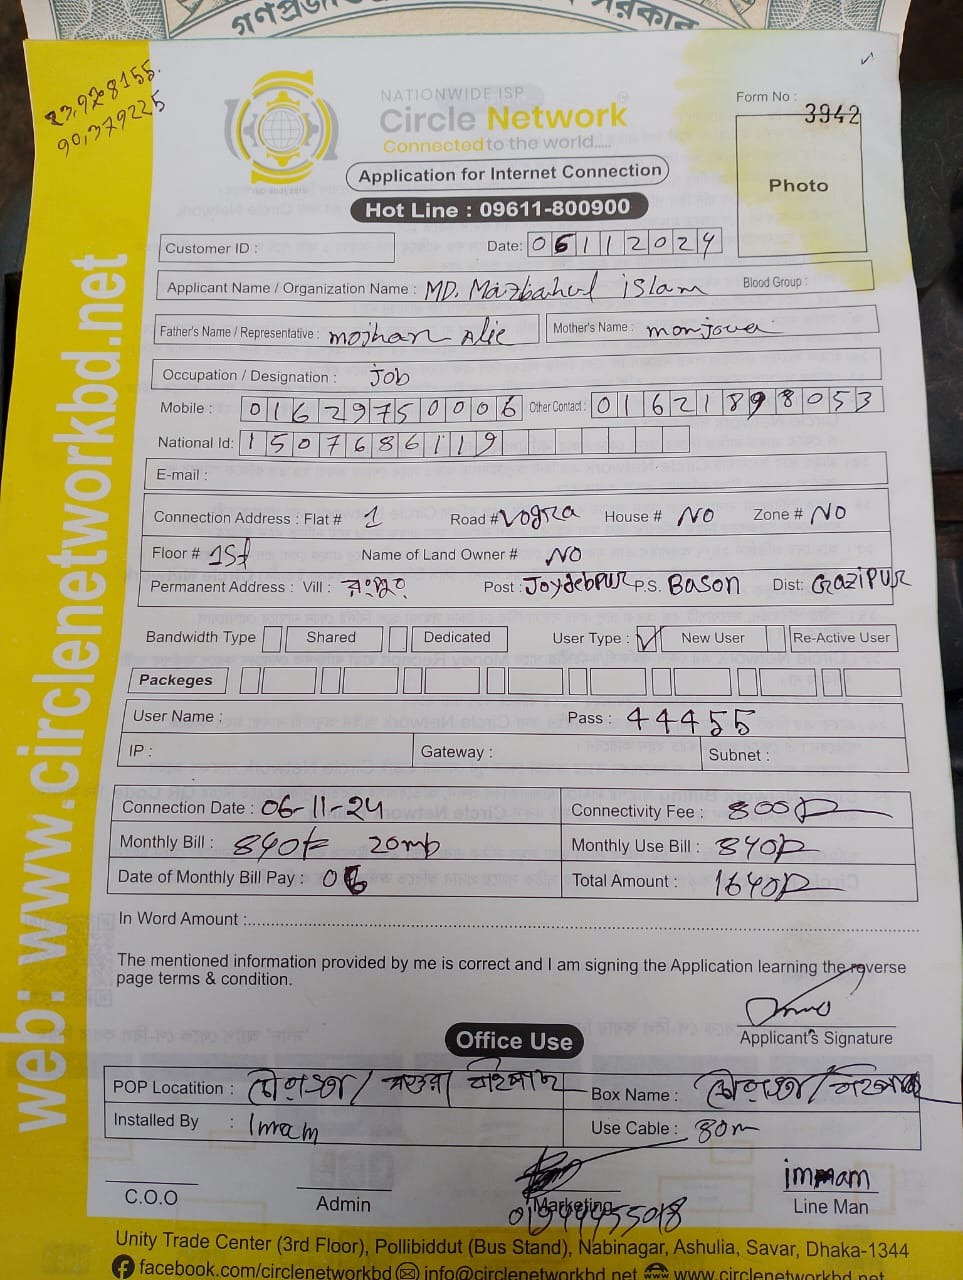 23.928155.
90,379225
NATIONWIDE ISP
Circle Network
Connected to the world.....
Application for Internet Connection
Hot Line : 09611-800900
Form No :
3942
Photo
Customer ID :
Date: 06112024
Applicant Name / Organization Name : MD. Mazbahul islam Blood Group :
Father's Name / Representative : mojhar Alie Mother's Name : monjova
Occupation / Designation : Job
Mobile : 01629750006 Other Contact : 01621898053
National Id: 1507686119
E-mail :
Connection Address : Flat # 1 Road # Vogra House # NO Zone # NO
Floor # 1St Name of Land Owner # NO
Permanent Address : Vill : Post : Joydebpur P.S. Bason Dist: Gazipur
Bandwidth Type Shared Dedicated User Type : New User Re-Active User
Packeges
User Name : Pass : 44455
IP : Gateway : Subnet :
Connection Date : 06-11-24 Connectivity Fee : 800
Monthly Bill : 840 20mb Monthly Use Bill : 840
Date of Monthly Bill Pay : 06 Total Amount : 1640
In Word Amount :
The mentioned information provided by me is correct and I am signing the Application learning the reverse
page terms & condition.
Applicant's Signature
Office Use
POP Locatition : Box Name :
Installed By : Imram Use Cable : 80m
immam
C.O.O Admin Marketing Line Man
Unity Trade Center (3rd Floor), Pollibiddut (Bus Stand), Nabinagar, Ashulia, Savar, Dhaka-1344
facebook.com/circlenetworkbd info@circlenetworkbd.net www.circlenetworkbd.net
web: www.circlenetworkbd.net